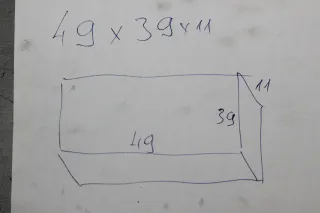 49 x 39 x 11
11
39
49